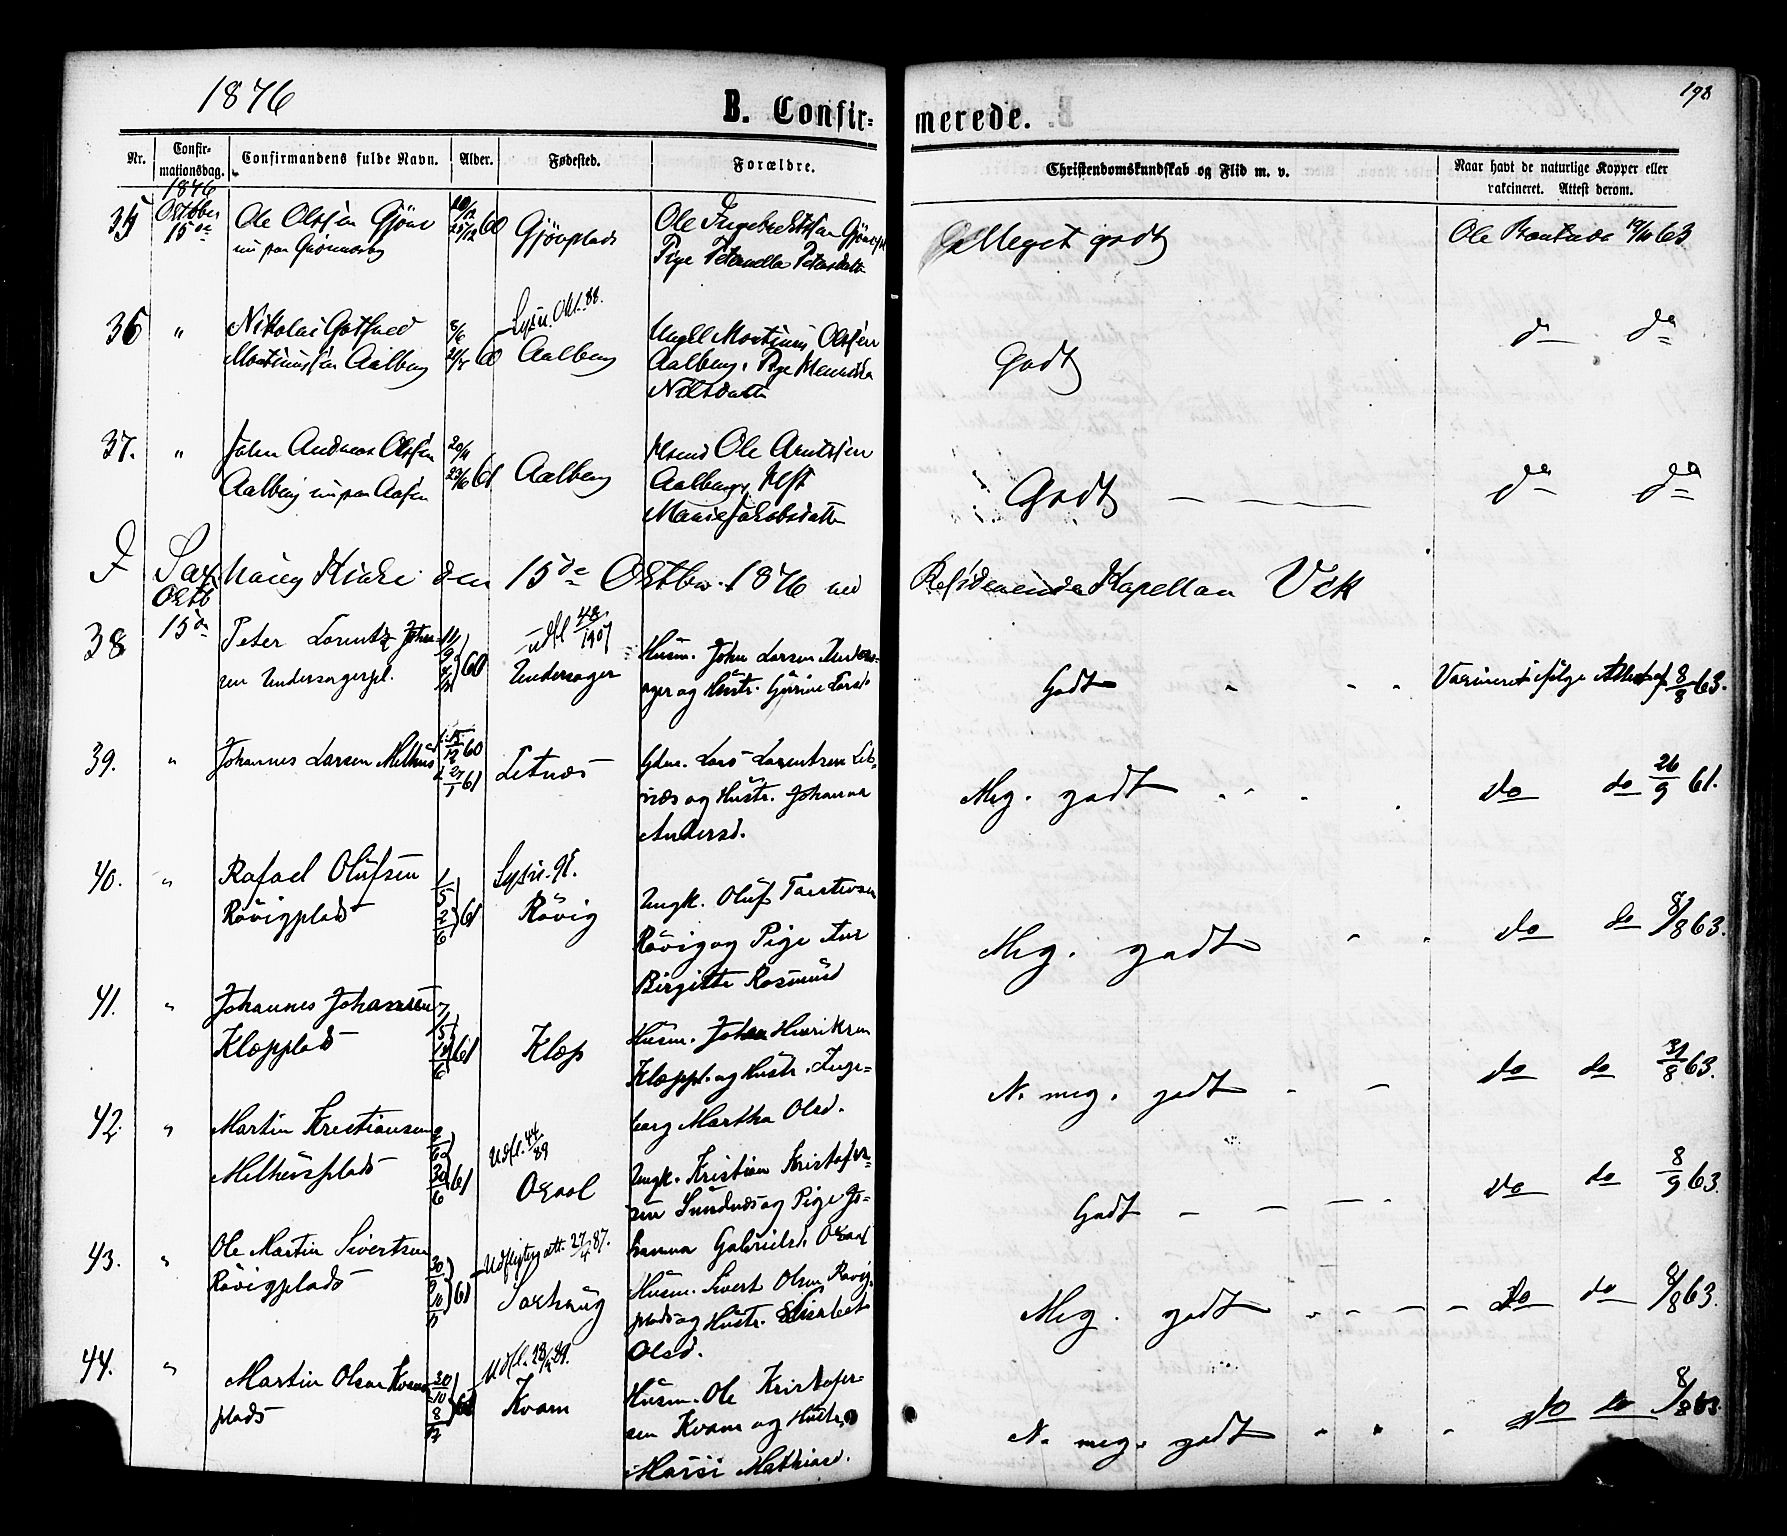 1876
B. Confir-
merede.
198
Nr.
Confir-
mationsdag.
Confirmandens fulde Navn.
Alder.
Fødested.
Forældre.
Christendomskundskab og Flid m. v.
Naar havt de naturlige Kopper eller
vakcineret. Attest derom.
1876
35 Octbr 15de Ole Olsen
Ole Ingebrektsen
Pige Petersdatter
Meget godt
Ole 63
36 " Nikolai
Aalberg 60 Aalberg
Lysn. Okt. 88.
Ungk Olsen
Aalberg, Pige
Nilsdatter
Godt
do do
37. " John Andreas Olsen
Aalberg nu paa Aasen
20/11
61
Aalberg
Ole Arntsen
Aalberg,
Marie Jakobsdatter
Godt — —
do do
I Kirke den 15de Oktbr. 1876 ved Residerende Kapellan Vek
Octb
15de
38 Peter Lorentz Johan-
sen Undersagerpl.
60
udfl 48/1907
Undersager
Husm. John Larsen Unders-
ager og Hustr. Gurine Larsd
Godt " " "
Vaccineret ifølge Attest af 8/8 63.
39. " Johannes Larsen Melhus
15/12 60
27/1 61
Letnæs
Gdm. Lars Lorentsen Let-
næs og Hustr. Johanna
Andersd.
Meg. godt " " "
do do 26/9 61.
40. " Rafael Olufsen
Rövigplads
1/5
2/6 61
Lysn. 91.
Rövig
Ungk. Oluf Torstensen
Rövig og Pige Ane
Birgitte Rasmusd
Meg. godt " "
do do 8/8 63.
41. " Johannes Johansen
Klæpplads
7/5
61
Klæp
Husm. Johan Henriksen
Klæppl. og Hustr. Inge-
borg Martha Olsd.
N. meg. godt " —
do do 31/8 63.
42. " Martin Kristiansen
Melhusplads
30/6 61
Udfl. 44/89
Ungk. Kristian Kristofer-
sen Sundnæs og Pige Jo-
hanna Gabrielsd.
Godt — — — "
do do 8/9 63.
43. " Ole Martin Sivertsen
Rövigplads
30/9
61
Udflytng att. 27/4 87.
Saxhaug
Husm. Sivert Olsen Rövig-
plads og Hustr. Elisabet
Olsd.
Meg. godt " — — —
do do 8/8 63.
44. " Martin Olsen Kvam-
plads
30/10
8/12
Kvam
Husm. Ole Kristofer-
sen Kvam og Hustr.
Massi Mathiasd.
N. meg. godt " " "
do do 8/8 63